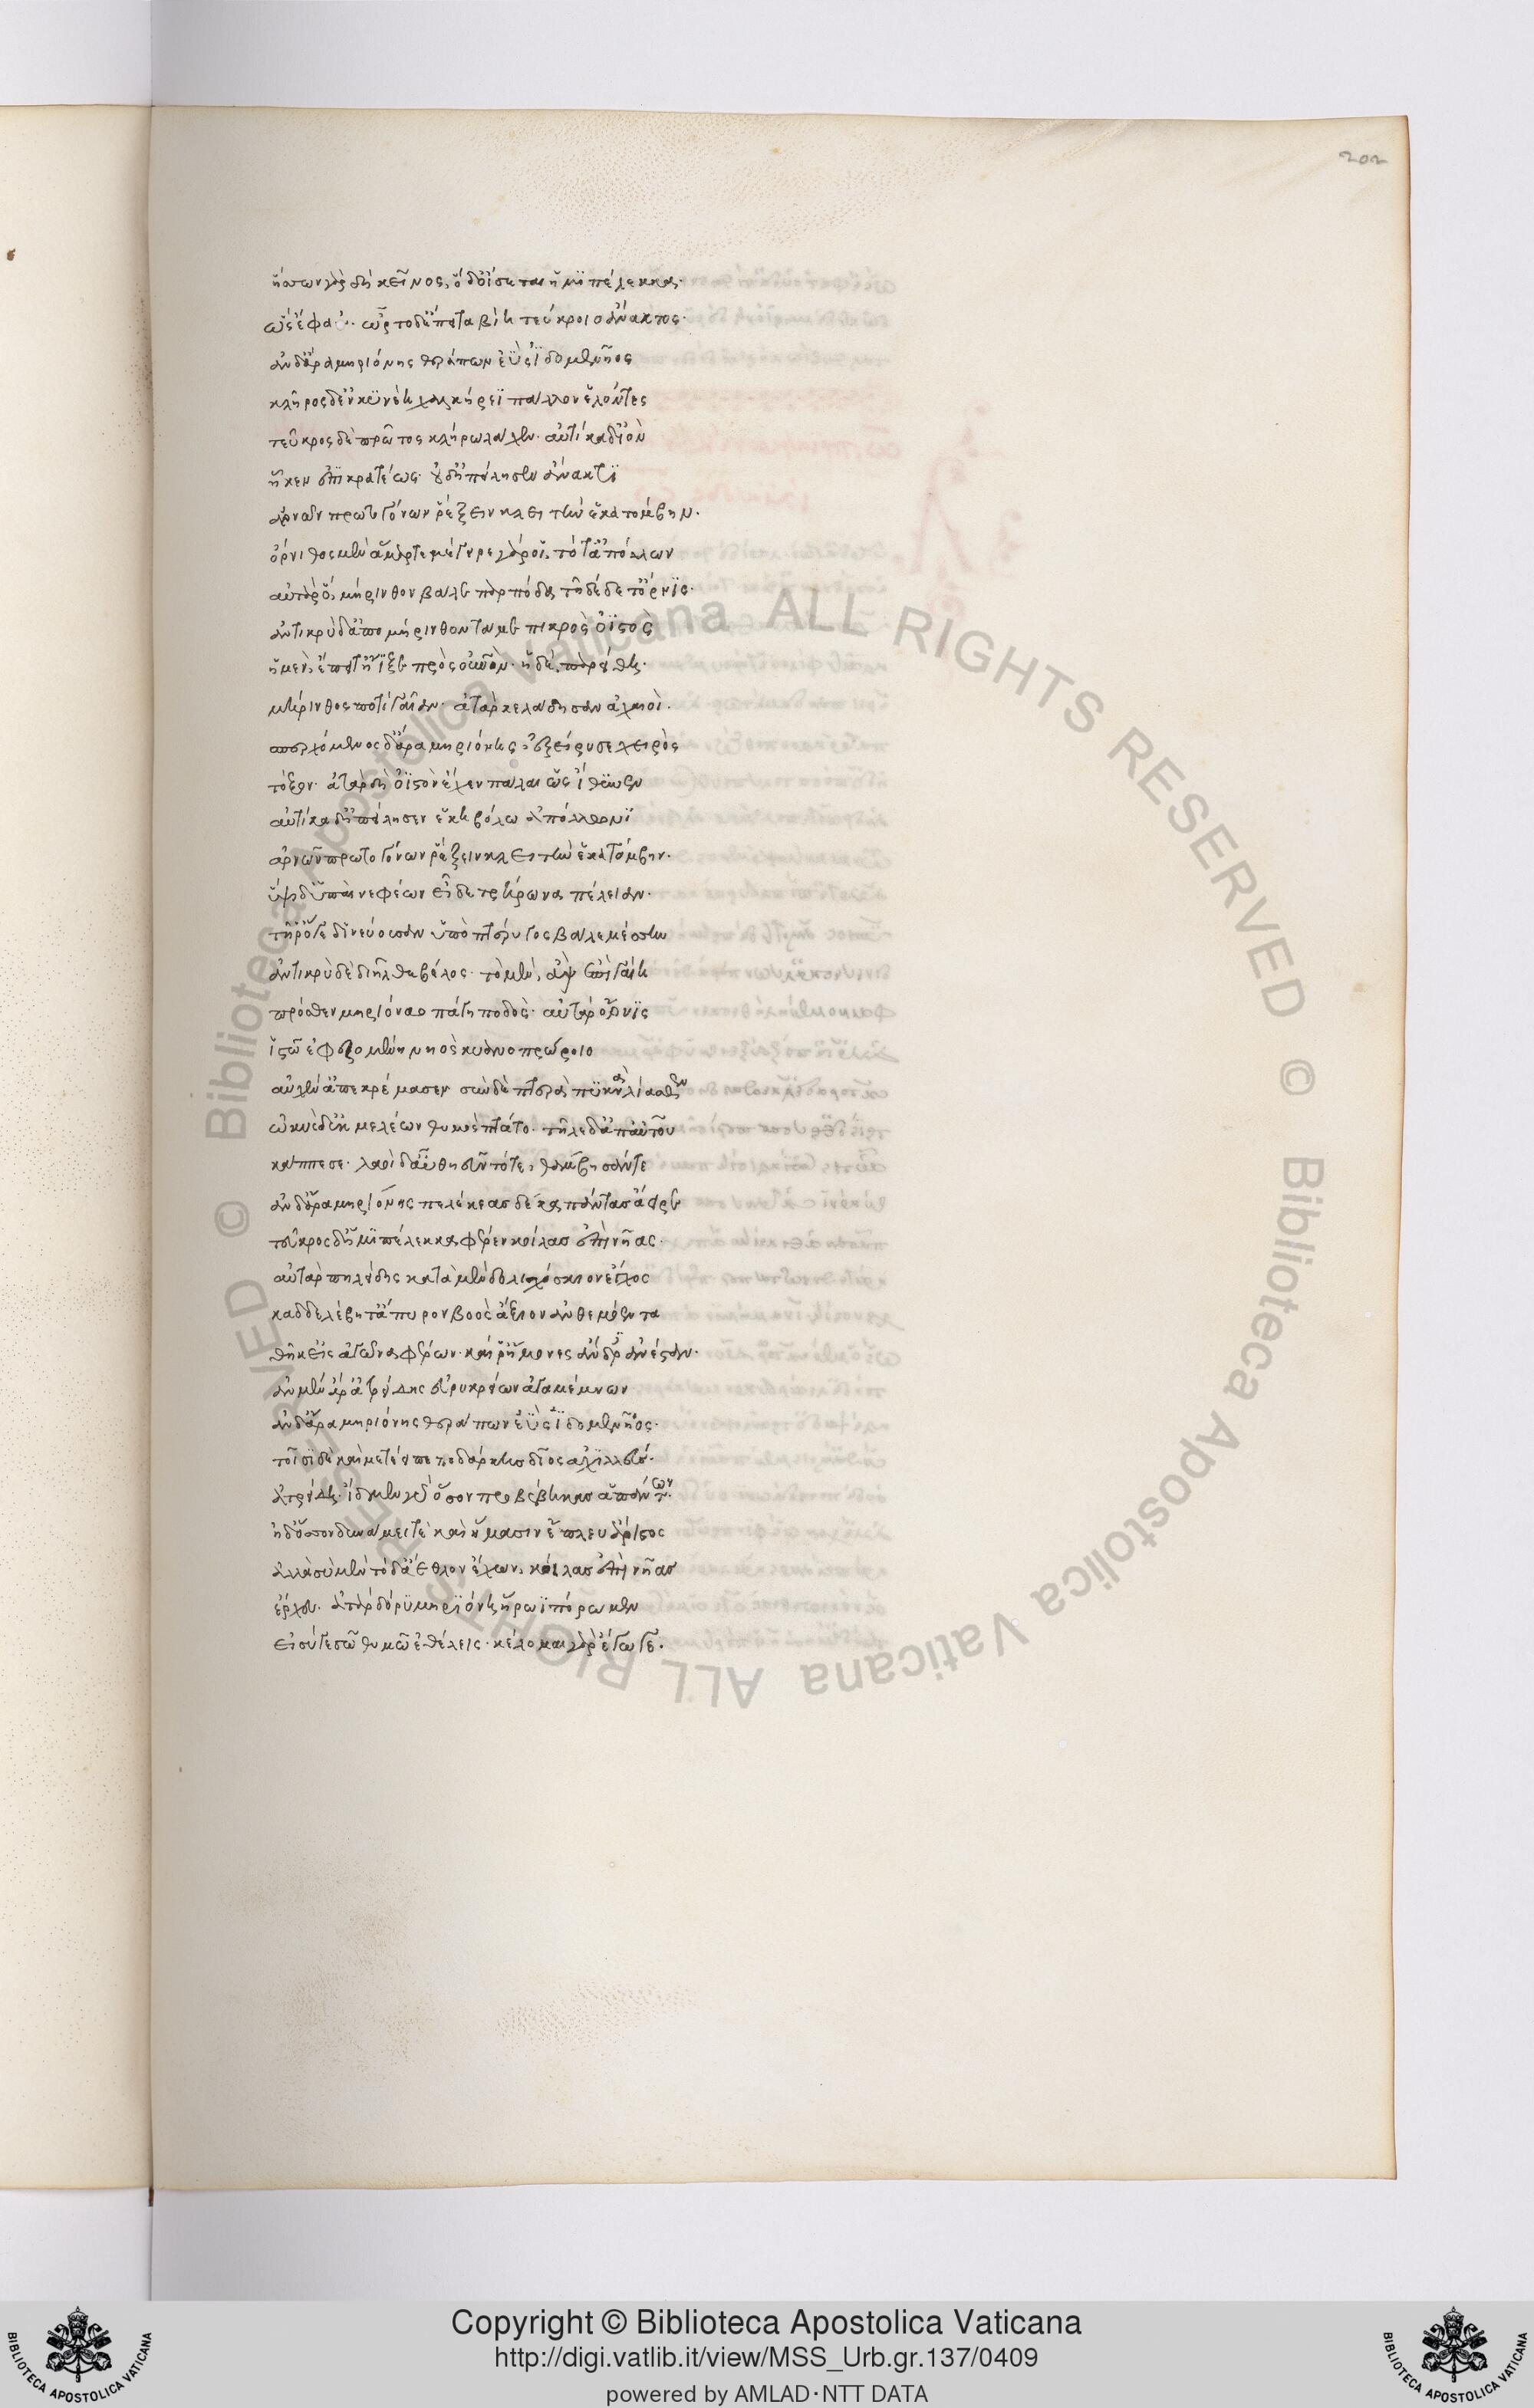 202
ἥσσων γὰρ δὴ κεῖνος, ὁ δ' οἴσεται ἡμιπέλεκκα·
ὣς ἔφατ'· ὦρτο δ' ἔπειτα βίη τεύκροιο ἄνακτος·
ἂν δ' ἄρα μηριόνης θεράπων ἐῢς ἰδομενῆος
κλήρους δ' ἐν κυνέῃ χαλκήρεϊ πάλλον ἑλόντες
τεῦκρος δὲ πρῶτος κλήρῳ λάχεν· αὐτίκα δ' ἰὸν
ἧκεν ἐπικρατέως· οὐδ' ἠπείλησεν ἄνακτι
ἀρνῶν πρωτογόνων ῥέξειν κλειτὴν ἑκατόμβην·
ὄρνιθος μὲν ἅμαρτε μέγηρε γάρ οἱ τό γ' ἀπόλλων
αὐτὰρ ὁ μήρινθον βάλε πὰρ πόδα τῇ δέδετ' ὄρνις·
ἀντικρὺ δ' ἀπὸ μήρινθον τάμε πικρὸς ὀϊστὸς
ἡ μὲν ἔπειτ' ἤϊξε πρὸς οὐρανὸν· ἡ δὲ παρείθη·
μήρινθος ποτὶ γαῖαν· ἀτὰρ κελάδησαν ἀχαιοὶ·
σπερχόμενος δ' ἄρα μηριόνης ἐξείρυσε χειρὸς
τόξον· ἀτὰρ δὴ ὀϊστὸν ἔχεν πάλαι ὡς ἴθυνεν
αὐτίκα δ' ἠπείλησεν ἑκηβόλῳ ἀπόλλωνι
ἀρνῶν πρωτογόνων ῥέξειν κλειτὴν ἑκατόμβην·
ὕψι δ' ὑπαὶ νεφέων εἶδε τρήρωνα πέλειαν·
τῇ ῥ' ὅγε δινεύουσαν ὑπὸ πτέρυγος βάλε μέσσην
ἀντικρὺ δὲ διῆλθε βέλος· τὸ μὲν ἂψ ἐπὶ γαίῃ
πρόσθεν μηριόναο πάγη ποδὸς· αὐτὰρ ὄρνις
ἱστῷ ἐφεζομένη νηὸς κυανοπρώροιο
αὐχέν' ἀπεκρέμασεν σὺν δὲ πτερὰ πυκνὰ λίασθεν
ὠκὺς δ' ἐκ μελέων θυμὸς πτάτο· τῆλε δ' ἀπ' αὐτοῦ
κάππεσε· λαοὶ δ' αὖ θηεῦντό τε, θάμβησάν τε
ἂν δ' ἄρα μηριόνης πελέκεας δέκα πάντας ἄειρε
τεῦκρος δ' ἡμιπέλεκκα φέρεν κοίλας ἐπὶ νῆας·
αὐτὰρ πηλείδης κατὰ μὲν δολιχόσκιον ἔγχος
καδδὲ λέβητ' ἄπυρον βοὸς ἄξιον ἀνθεμόεντα
θῆκ' εἰς ἀγῶνα φέρων· καί ῥ' ἥμονες ἄνδρες ἀνέσταν·
ἂν μὲν ἄρ' ἀτρείδης εὐρυκρείων ἀγαμέμνων
ἂν δ' ἄρα μηριόνης θεράπων ἐῢς ἰδομενῆος·
τοῖσι δὲ καὶ μετέειπε ποδάρκης δῖος ἀχιλλεύς·
ἀτρείδη· ἴδμεν γὰρ ὅσον προβέβηκας ἁπάντων·
ἠδ' ὅσσον δυνάμει τὲ καὶ ἥμασιν ἔπλευ ἄριστος
ἀλλὰ σὺ μὲν τόδ' ἄεθλον ἔχων, κοίλας ἐπὶ νῆας
ἔρχευ· ἀτὰρ δόρυ μηριόνῃ ἥρωϊ πόρωμεν
εἰ σύγε σῷ θυμῷ ἐθέλεις· κέλομαι γὰρ ἔγωγε·
Copyright © Biblioteca Apostolica Vaticana
http://digi.vatlib.it/view/MSS_Urb.gr.137/0409
powered by AMLAD·NTT DATA